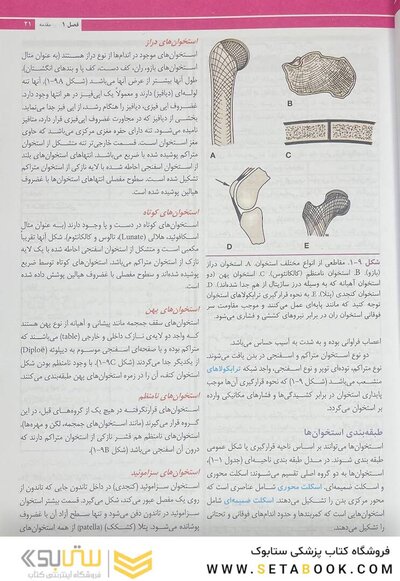 فصل ۱ مقدمه ۲۱
A
B
C
D
E
شکل ۹-۱. مقاطعی از انواع مختلف استخوان. A. استخوان دراز
(بازو). B. استخوان نامنظم (کالکانئوس). C. استخوان پهن (دو
استخوان آهیانه که به وسیله درز ساژیتال از هم جدا شده‌اند). D.
استخوان کنجدی (پتلا). E. به نحوه قرارگیری ترابکولاهای استخوان
توجه کنید که مانند پایه‌ای عمل می‌کنند و موجب مقاومت سر
فوقانی استخوان ران در برابر نیروهای کششی و فشاری می‌شود.
اعصاب فراوانی بوده و به شدت به آسیب حساس می‌باشد.
دو نوع استخوان متراکم و اسفنجی در بدن یافت می‌شوند.
نوع متراکم، توده‌ای توپر و نوع اسفنجی، واجد شبکه ترابکولاهای
منشعب می‌باشد (شکل ۹-۱) که نحوه قرارگیری آن‌ها موجب
پایداری استخوان در برابر کشیدگی‌ها و فشارهای مکانیکی وارده
بر استخوان می‌گردد.
طبقه‌بندی استخوان‌ها
استخوان‌ها می‌توانند بر اساس ناحیه قرارگیری یا شکل عمومی
طبقه بندی شوند. در مدل طبقه بندی ناحیه‌ای (جدول ۱-۱)،
استخوان‌ها به دو گروه اصلی تقسیم می‌شوند: اسکلت محوری
و اسکلت ضمیمه‌ای. اسکلت محوری شامل عناصری است که
محور مرکزی بدن را تشکیل می‌دهند. اسکلت ضمیمه‌ای شامل
استخوان‌هایی است که کمربندها و حدود اندام‌های فوقانی و تحتانی
را تشکیل می‌دهند.
استخوان‌های دراز
استخوان‌های موجود در اندام‌ها از نوع دراز هستند (به عنوان مثال
استخوان‌های بازو، ران، کف دست، کف پا و بندهای انگشتان).
طول آنها بیشتر از عرض آنها می‌باشد (شکل ۹A-۱). آنها تنه
لوله‌ای (دیافیز) دارند و معمولاً یک اپی‌فیز در هر انتها وجود دارد.
غضروف اپی فیزی، دیافیز را هنگام رشد، از اپی فیز جدا می‌نماید.
بخشی از دیافیز که در مجاورت غضروف اپی‌فیزی قرار دارد، متافیز
نامیده می‌شود. تنه دارای حفره مغزی مرکزی می‌باشد که حاوی
مغز استخوان است. قسمت خارجی‌تر تنه متشکل از استخوان
متراکم پوشیده شده با ضریع می‌باشد. انتهاهای استخوان‌های بلند
از استخوان اسفنجی احاطه شده با لایه نازکی از استخوان متراکم
تشکیل شده است. سطوح مفصلی انتهاهای استخوان‌ها با غضروف
هیالین پوشیده شده است.
استخوان‌های کوتاه
استخوان‌های کوتاه در دست و پا وجود دارند (به عنوان مثال
اسکافوئید، هلالی (Lunate)، تالوس و کالکانئوم). شکل آنها تقریباً
مکعبی است و متشکل از استخوان اسفنجی احاطه شده با یک لایه
نازک از استخوان متراکم می‌باشد. استخوان‌های کوتاه توسط ضریع
پوشیده شده‌اند و سطوح مفصلی با غضروف هیالین پوشش داده شده
است.
استخوان‌های پهن
استخوان‌های سقف جمجمه مانند پیشانی و آهیانه از نوع پهن هستند
که واجد دو لایه‌ی نازک داخلی و خارجی (table) می‌باشند که
متراکم بوده و با صفحه‌ای اسفنجی موسوم به دیپلوئه (Diploë)
از یکدیگر جدا می‌گردند (شکل ۹C-۱). با وجود نامنظم بودن شکل
استخوان کتف، آن را در زمره استخوان‌های پهن طبقه‌بندی می‌کنند.
استخوان‌های نامنظم
استخوان‌های قرارنگرفته در هیچ یک از گروه‌های قبل، در این
گروه قرار می‌گیرند (مانند استخوان‌های جمجمه، لگن و مهره‌ها).
استخوان‌های نامنظم هم قشر نازکی از استخوان متراکم دارند که
درون آن اسفنجی می‌باشد (شکل ۹B-۱).
استخوان‌های سزاموئید
استخوان‌های سزاموئید (کنجدی) در داخل تاندون جایی که تاندون از
روی یک مفصل عبور می‌کند، شکل می‌گیرد. قسمت بیشتر استخوان
سزاموئید در تاندون دفن می‌شود و تنها سطح آزاد آن با غضروف
پوشانده می‌شود. پتلا (کشکک) (patella) از همه استخوان‌های
ستابوک
فروشگاه اینترنتی کتاب
فروشگاه کتاب پزشکی ستابوک
WWW.SETABOOK.COM